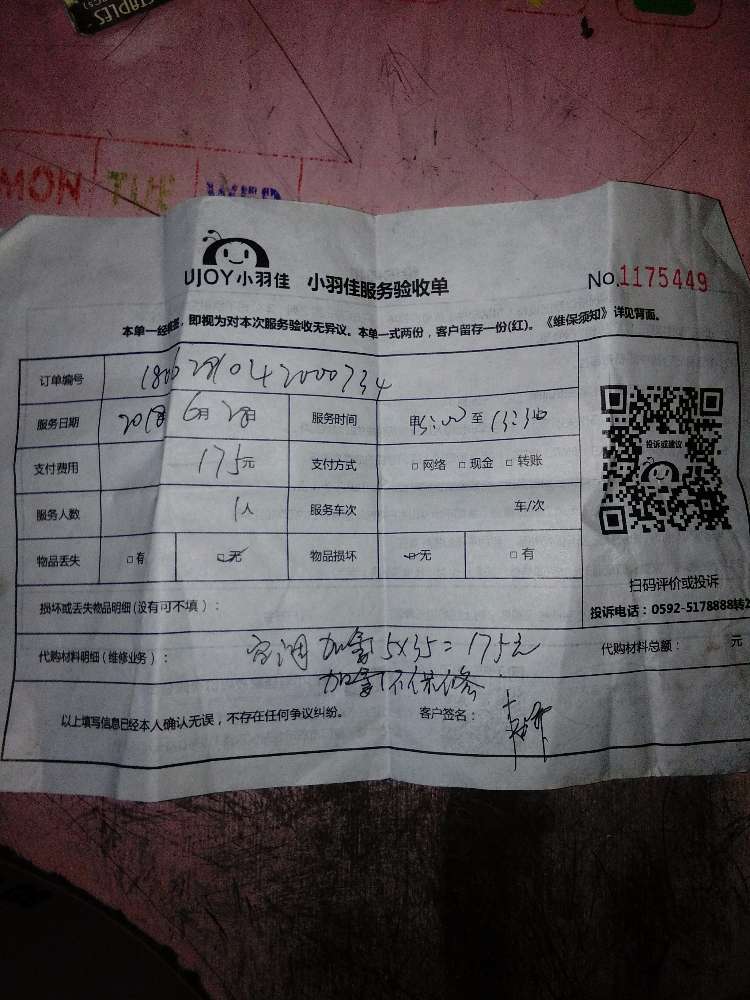 STAPLES
MON TUE WED
UJOY小羽佳 小羽佳服务验收单 No.1175449
本单一经签, 即视为对本次服务验收无异议。本单一式两份, 客户留存一份(红)。《维保须知》详见背面。
订单编号 1806281042000734
服务日期 2018年6月28日 服务时间 15:00 至 15:30
支付费用 175元 支付方式 □网络 □现金 □转账
投诉或建议
服务人数 1人 服务车次 车/次
物品丢失 □有 □无 物品损坏 □无 □有
扫码评价或投诉
损坏或丢失物品明细(没有可不填):
投诉电话:0592-5178888转2
代购材料明细(维修业务): 空调加雪5X35=175元 代购材料总额: 元
加雪不保修
以上填写信息已经本人确认无误,不存在任何争议纠纷。 客户签名: